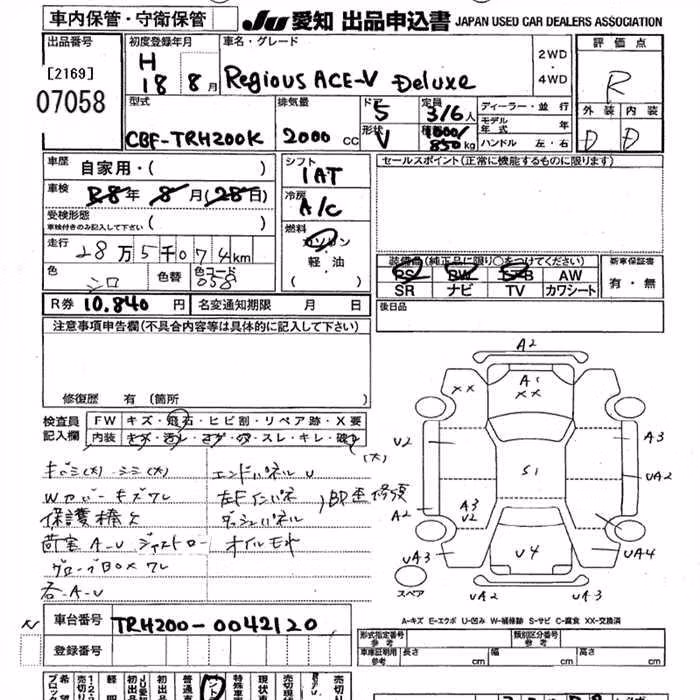 車内保管・守衛保管
JU 愛知 出品申込書 JAPAN USED CAR DEALERS ASSOCIATION
出品番号
[2169]
07058
初度登録年月
H
18 8月
車名・グレード
Regious ACE-V Deluxe
2WD
・
4WD
評価点
R
外装 内装
D D
型式
CBF-TRH200K
排気量
2000 cc
ドア
5
形状
V
定員
3/6人
850kg
ディーラー・並行
モデル年式 年
ハンドル 左・右
車歴
自家用・( )
車検
R8年 8月(28日)
受検形態
車検付きのみ記入して下さい ( )
走行
28万5千074km
色
シロ
色替
色コード
058
シフト
1AT
冷房
A/C
燃料
ガソリン
軽・油
( )
セールスポイント(正常に機能するものに限ります)
装備欄(純正品に限り○をつけてください)
PS PW エアB AW
SR ナビ TV カワシート
新車保証書
有・無
R券 10,840円
名変通知期限 月 日
後日品
注意事項申告欄(不具合内容等は具体的に記入して下さい)
修復歴 有(箇所 )
検査員
記入欄
FW キズ・飛石・ヒビ割・リペア跡・X要
内装 キズ・汚レ・コゲ・穴・スレ・キレ・破レ
(大)
キバミ(大)・シミ(大)
Wカバーキズワレ
保護棒欠
荷室 A-U
グローブBOXワレ
各-A-U
エンドパネルU
左Fインパネ
ダッシュパネル
オイルモレ
A2
XX
A1
XX
U2
A3
S1
UA2
A3
U2
A2
UA3
U4
UA4
UA2
UA3
スペア
A-キズ E-エクボ U-凹み W-補修跡 S-サビ C-腐食 XX-交換済
車台番号
TRH200-0042120
登録番号
型式指定番号
参考
類別区分番号
参考
車庫証明用
参考
長さ cm 幅 cm 高さ cm